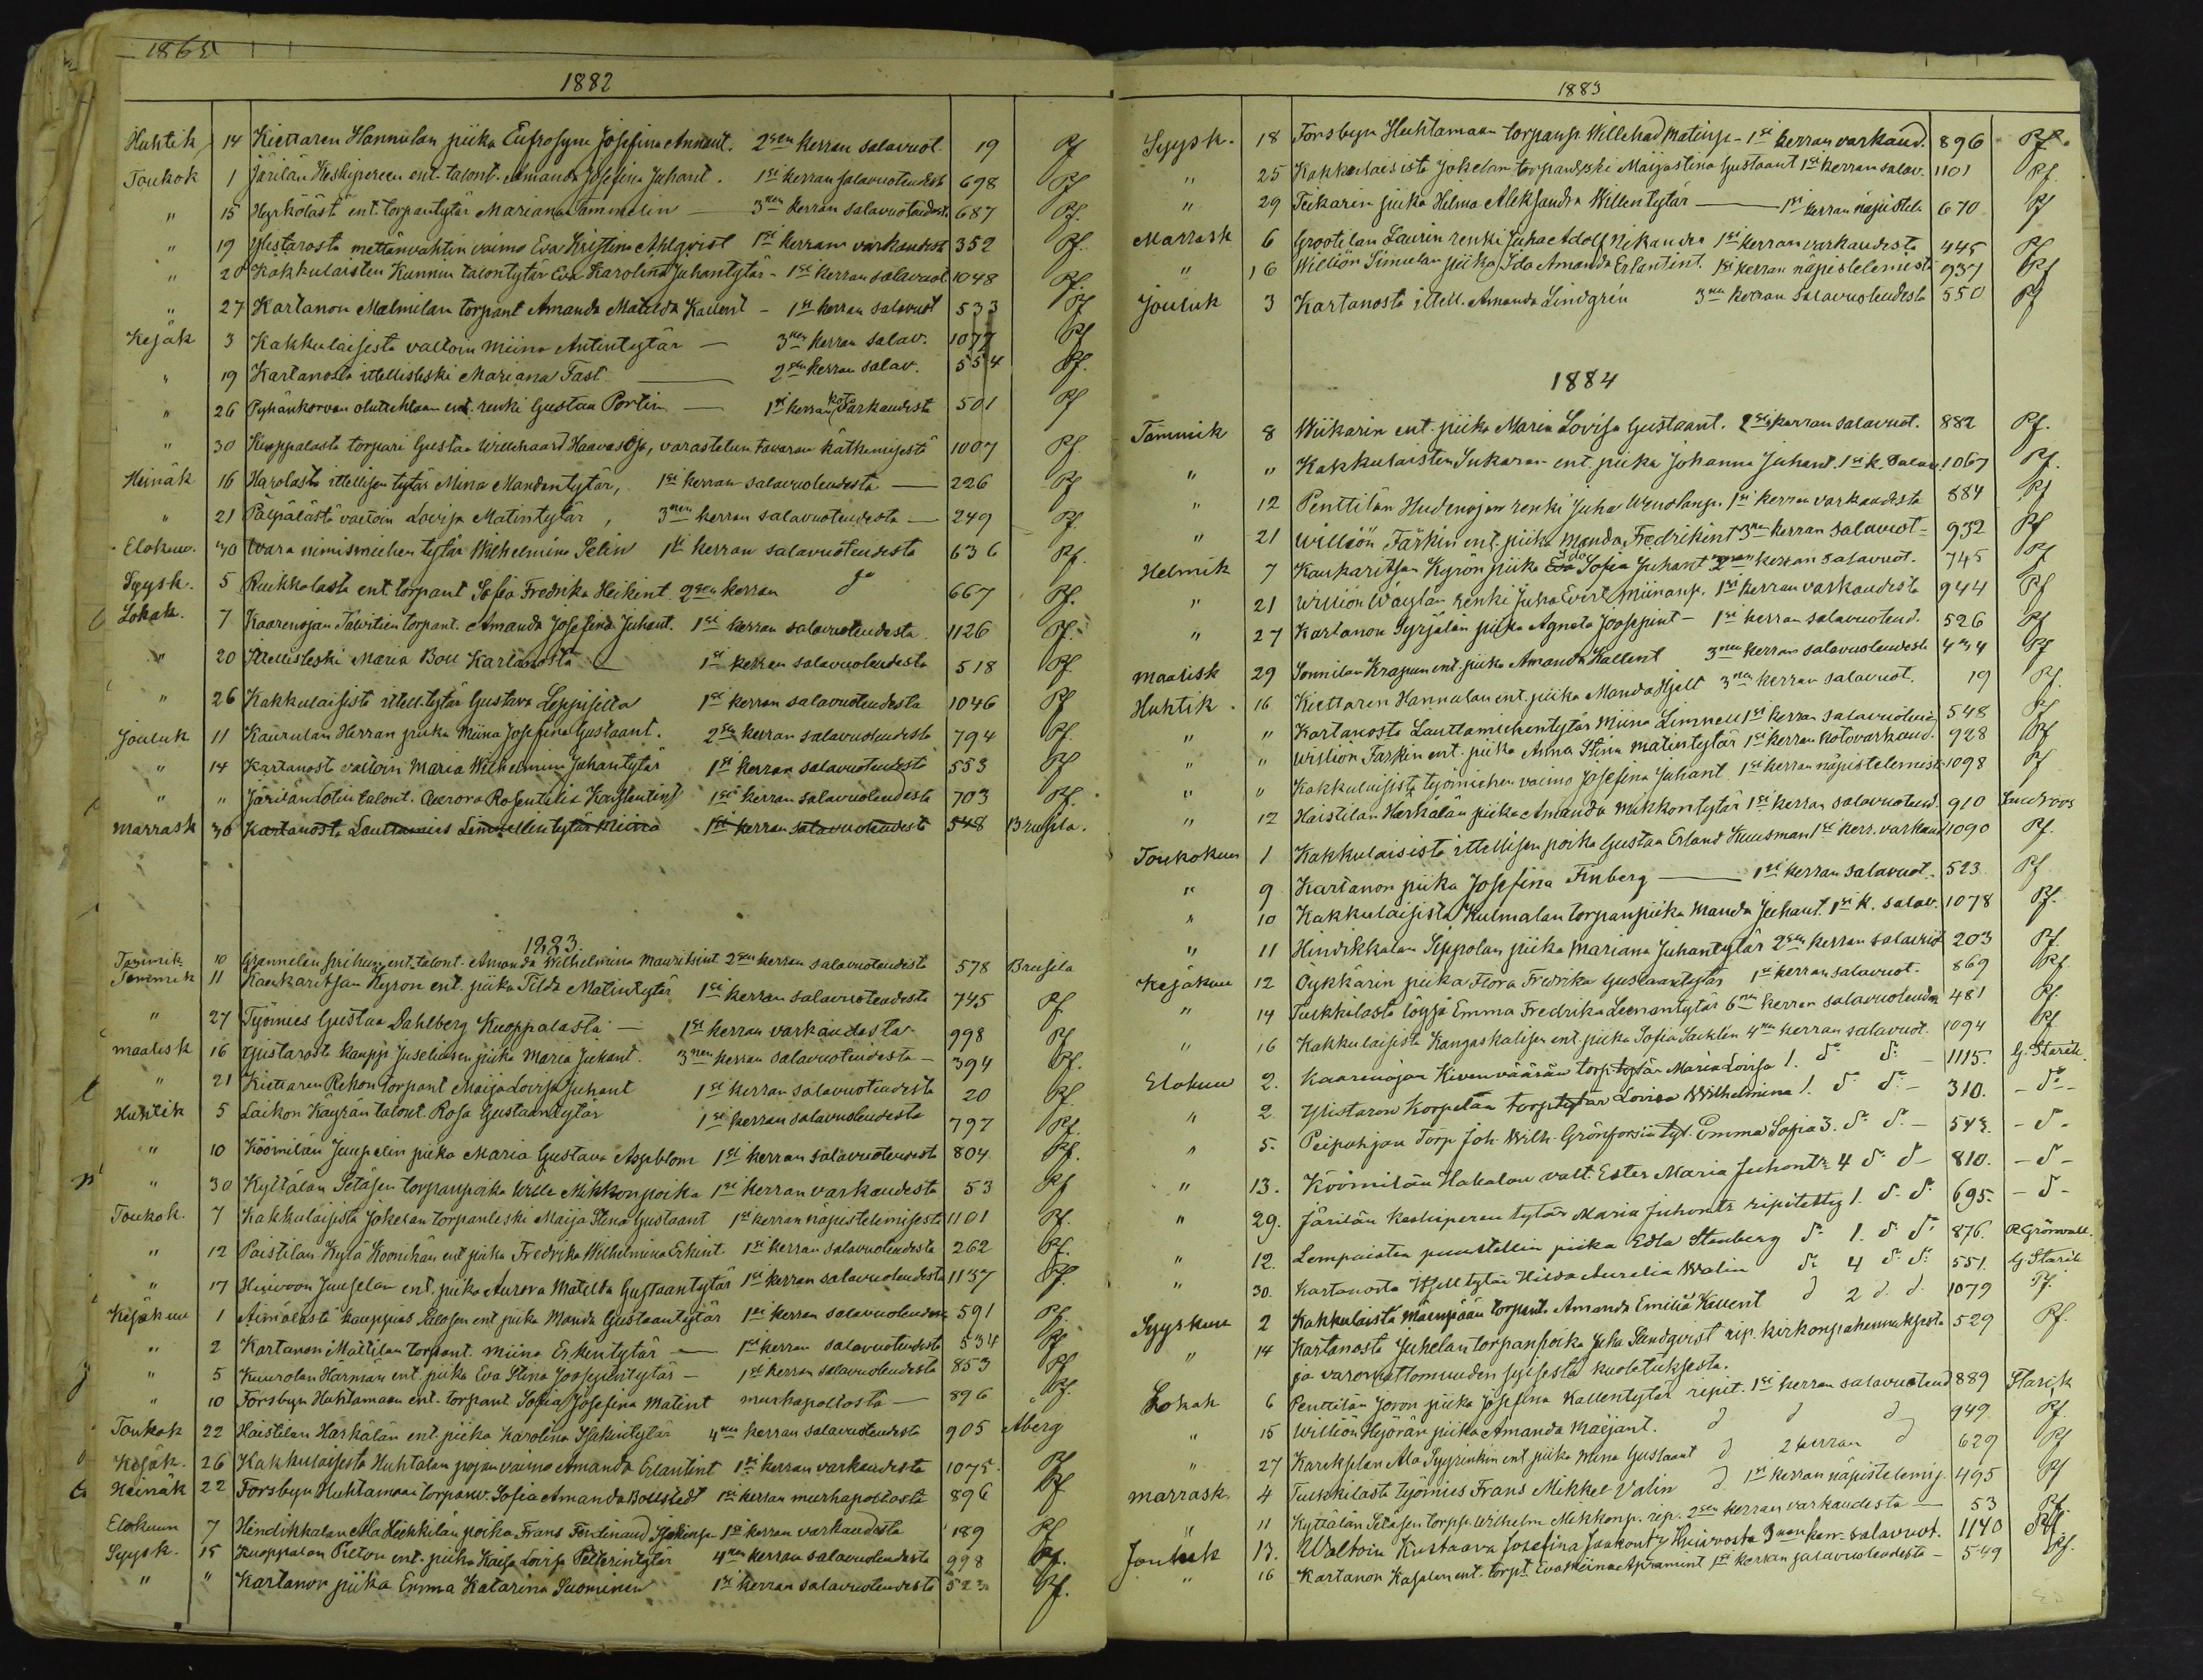 1865
1882
Huhtik 14 Kiettaren Hannulan piika Eufrosyne Josefina Annant. 2sen kerran salavuot. 19 Rf
Toukok 1 Järilän Keskipereen ent. talont. Amanda Josefina Juhant. 1si kerran salavuoteudest 698 Rf
" 15 Hyrkölästä ent. torpantytär Mariana Tammelin — 3nen kerran salavuoteudest. 687 Rf.
" 19 Ylistarosta mettänvahtin vaimo Eva Kristina Ahlqvist 1si kerran varkaudest 352 Rf.
" 20 Kakkulaisten Kunnin talontytär Eva Karolina Juhantytär - 1si kerran salavuot 1048 Rf.
" 27 Kartanon Malmilan torpant Amanda Matilda Kallent - 1si kerran salavuot 533 Rf
Kesäk 3 Kakkulaisista valtoin Miina Antintytär — 3nen kerran salav. 1077 Rf
" 19 Kartanosta ittellisleski Mariana Fast — 2sen kerran salav. 554 Rf.
" 26 Pyhänkorvan oluttehtaan ent. renki Gustaa Portin — 1si kerran kotovarkaudesta 501 Rf
" 30 Kuoppalasta torpari Gustaa Willehaart Haavasoja, varastetun tavaran kätkemisestä 1007 Rf.
Heinäk 16 Harolasta ittellisen tytär Mina Mandantytär, 1si kerran salavuoteudesta — 226 Rf
" 21 Pälpälästä valtoin Lovisa Matintytär, 3nen kerran salavuoteudesta — 249 Rf.
Elokuu. 30 Wara nimismiehen tytär Wilhelmina Selin 1si kerran salavuoteudesta 636 Rf.
Syysk. 5 Ruikkalasta ent. torpant Sofia Fredrika Heikint. 2sen kerran do 667 Rf.
Lokak. 7 Kaarenojan Talvitien torpant. Amanda Josefina Juhant. 1si kerran salavuoteudesta. 1126 Rf.
" 20 Ittellisleski Maria Boll Kartanosta — 1si kerran salavuoteudesta 518 Rf.
" 26 Kakkulaisista ittell.tytär Gustava Leppisilta 1si kerran salavuoteudesta 1046 Rf
Jouluk 11 Kaurulan Herran piika Miina Josefina Gustaant. 2sen kerran salavuoteudesta 794 Rf.
" 14 Kartanosta valtoin Maria Wilhelmina Juhantytär 1si kerran salavuoteudesta 553 Rf
" " Järilän Uotin talont. Aurora Rosentilia Konstantint 1si kerran salavuoteudesta 703 Rf.
Marrask 30 Kartanosta Lauttamies Limnellin tytär Miina 1si kerran salavuoteudesta 548 Brusila.
1883.
Tammik 10 Grannilan ent. talont. Amanda Wilhelmina Mauritsint 2sen kerran salavuoteudesta 578 Brusila
Tammik 11 Kaukaritsan Kyrön ent. piika Tilda Matintytär 1si kerran salavuoteudesta 745 Rf
" 27 Työmies Gustaa Dahlberg Kuoppalasta — 1si kerran varkaudesta 998 Rf
Maalisk 16 Ylistarosta kaupp. Juseliusen piika Maria Juhant. 3nen kerran salavuoteudesta - 394 Rf.
" 21 Kiettaren Rekon torpant Maija Lovisa Juhant 1si kerran salavuoteudesta 20 Rf.
Huhtik 5 Laikon Käyrän talont. Rosa Gustaantytär 1si kerran salavuoteudesta 797 Rf.
" 10 Köömilän Juupelin piika Maria Gustava Aspblom 1si kerran salavuoteudesta 804 Rf.
" 30 Kyttälän Setäsen torpanpoika Wille Mikkonpoika 1si kerran varkaudesta 53 Rf
Toukok. 7 Kakkulaisista Jokelan torpanleski Maija Stina Gustaant 1si kerran näpistelemisestä 1101 Rf.
" 12 Paistilan Kylä Koonikan ent. piika Fredrika Wilhelmina Erkint. 1si kerran salavuoteudesta 262 Rf.
" 17 Hiivoon Juuselan ent. piika Aurora Matilda Gustaantytär 1si kerran salavuoteudesta 1137 Rf
Kesäkuu 1 Äimälästä kauppias Salosen ent piika Manda Gustaantytär 1si kerran salavuoteudesta 591 Rf.
" 2 Kartanon Mattilan torpant. Miina Erkintytär — 1si kerran salavuoteudesta 534 Rf
" 5 Kuurolan Härmän ent. piika Eva Stina Joosepintytär - 1si kerran salavuoteudesta 853 Rf
" 10 Forsbyn Huhtamaan ent. torpant Sofia Josefina Matint murhapoltosta — 896 Rf.
Toukok 22 Haistilan Härkälän ent piika Karolina Isakintytär 4nen kerran salavuoteudesta 905 Åberg
Kesäk. 26 Kakkulaisista Huhtalan pojan vaimo Amanda Erlantint 1si kerran varkaudesta 1075. Rf
Heinäk 22 Forsbyn Huhtamaan torpanv. Sofia Amanda Bollstedt 1si kerran murhapoltosta 896 Rf
Elokuun 7 Hindikkalan Ala Heikkilän poika Frans Ferdinand Isakinp. 1si kerran varkaudesta 189 Rf
Syysk. 15 Kuoppalan Pieton ent. piika Kaisa Lovisa Petterintytär 4nen kerran salavuoteudesta 998 Rf.
" " Kartanon piika Emma Katarina Suominen 1si kerran salavuoteudesta 523 Rf.
1883
Syysk. 18 Forsbyn Huhtamaan torpanp. Willehad Matinp - 1si kerran varkaud. 896 Rf.
" 25 Kakkulaisista Jokelan torpanleski Maijastina Gustaant 1si kerran salav. 1101 Rf.
" 29 Teikarin piika Hilma Aleksandra Willentytär — 1si kerran näpistele 670 Rf
Marrask 6 Grootilan Laurin renki Juha Adolf Nikander 1si kerran varkaudesta 445 Rf
" 16 Williön Simulan piika Ida Amanda Erlantint. 1si kerran näpistelemist. 937 Rf
Jouluk 3 Kartanosta ittell. Amanda Lindgrén 3nen kerran salavuoteudesta 550 Rf
1884
Tammik 8 Wiikarin ent. piika Maria Lovisa Gustaant. 2sen kerran salavuot. 882 Rf.
" " Kakkulaisten Sukaran ent. piika Johanna Juhant. 1si k. salav. 1067 Rf.
" 12 Penttilän Hudenojan renki Juha Wenolanp. 1si kerran varkaudesta 884 Rf
" 21 Williön Färkin ent. piika Manda Fredrikint 3nen kerran salavuot- 932 Rf
Helmik 7 Kaukaritsan Kyrön piika Eva Ida Sofia Juhant 2nen kerran salavuot. 745 Rf
" 21 Williön Waiylan renki Juha Evert Miinanp. 1si kerran varkaudesta 944 Rf
" 27 Kartanon Syrjälän piika Agneta Joosepint - 1si kerran salavuoteud. 526 Rf
Maalisk 29 Sonnilan Krapun ent. piika Amanda Kallent 3nen kerran salavuoteudest 434 Rf
Huhtik. 16 Kiettaren Hannulan ent. piika Manda Hjelt 3nen kerran salavuot. 19 Rf.
" " Kartanosta Lauttamiehentytär Miina Limnell 1si kerran salavuoteud. 548 Rf
" " Williön Färkin ent. piika Anna Stina Matintytär 1si kerran kotovarkaud. 928 Rf
" " Kakkulaisista työmiehen vaimo Josefina Juhant. 1si kerran näpistelemist 1098 Rf
" 12 Haistilan Härkälän piika Amanda Mikkontytär 1si kerran salavuoteud. 910 Lindroos
Toukokuu 1 Kakkulaisista ittellisen poika Gustaa Erland Kuusman 1si kerr. varkaud 1090 Rf.
" 9 Kartanon piika Josefina Finberg — 1si kerran salavuot. 523 Rf
" 10 Kakkulaisista Kulmalan torpanpiika Manda Juhant. 1si k. salav. 1078 Rf.
" 11 Hindikkalan Seppolan piika Mariana Juhantytär 2sen kerran salavuot 203 Rf.
Kesäkuu 12 Öykkärin piika Flora Fredrika Gustaantytär 1si kerran salavuot. 869 Rf.
" 14 Tulkkilasta löysä Emma Fredrika Leenantytär 6nen kerran salavuoteudes 481 Rf.
" 16 Kakkulaisista Kangaskalisen ent. piika Sofia Sacklén 4nen kerran salavuot. 1094 Rf.
Elokuu 2. Kaarenojan Kivenväärän torp.tytär Maria Lovisa 1. do do - 1115. G. Starck.
" 2 Ylistaron Korpelan torptytär Lovisa Wilhelmina 1. do do - 310. - do -
" 5. Peipohjan Torp Joh. Wilh. Grönforsin tyt. Emma Sofia 3. do do - 543. - do -
" 13. Köömilän Hakalan valt. Ester Maria Juhontr. 4 do do - 810. - do -
" 29. Järilän Keskipereen tytär Maria Juhontr ripitetty 1. do do 695. - do -
" 12. Lempaisten puustellin piika Edla Stenberg do 1. do do 876. R Grönvall.
" 30. Kartanosta Itsell tytär Hilda Aurelia Walin do 4 do do 551. G Starck
Syyskuu 2 Kakkulaista Mäenpään torpant. Amanda Emilia Kallent do 2 do do 1079 Rf.
" 14 Kartanosta Juhelan torpanpoika Juha Sandqvist rip. kirkonpahennuksesta 529 Rf.
ja varomattomuuden syisestä kuoletuksesta.
Lokak 6 Penttilän Joron piika Josefina Kallentytär ripit. 1si kerran salavuoteud 889 Starck
" 15 Williön Hyörän piika Amanda Maijant. do do do 949 Rf.
" 27 Kareksilan Ala Syyrinkin ent piika Miina Gustaant do 2 kerran do 629 Rf
Marrask 4 Tulkkilasta työmies Frans Mikkel Valin do 1si kerran näpistelemis. 495 Rf
" 11 Kyttälän Setäsen torpp. Wilhelm Mikkonp. rip. 2sen kerran varkaudesta — 53 Rf.
Jouluk 13. Waltoin Kustaava Josefina Jaakonty Hiivoosta 3nen kerr. salavuot. 1140 Rf
" 16 Kartanon Kasalan ent. torpt Eva Miina Apramint 1si kerran salavuoteudesta - 549 Rf.